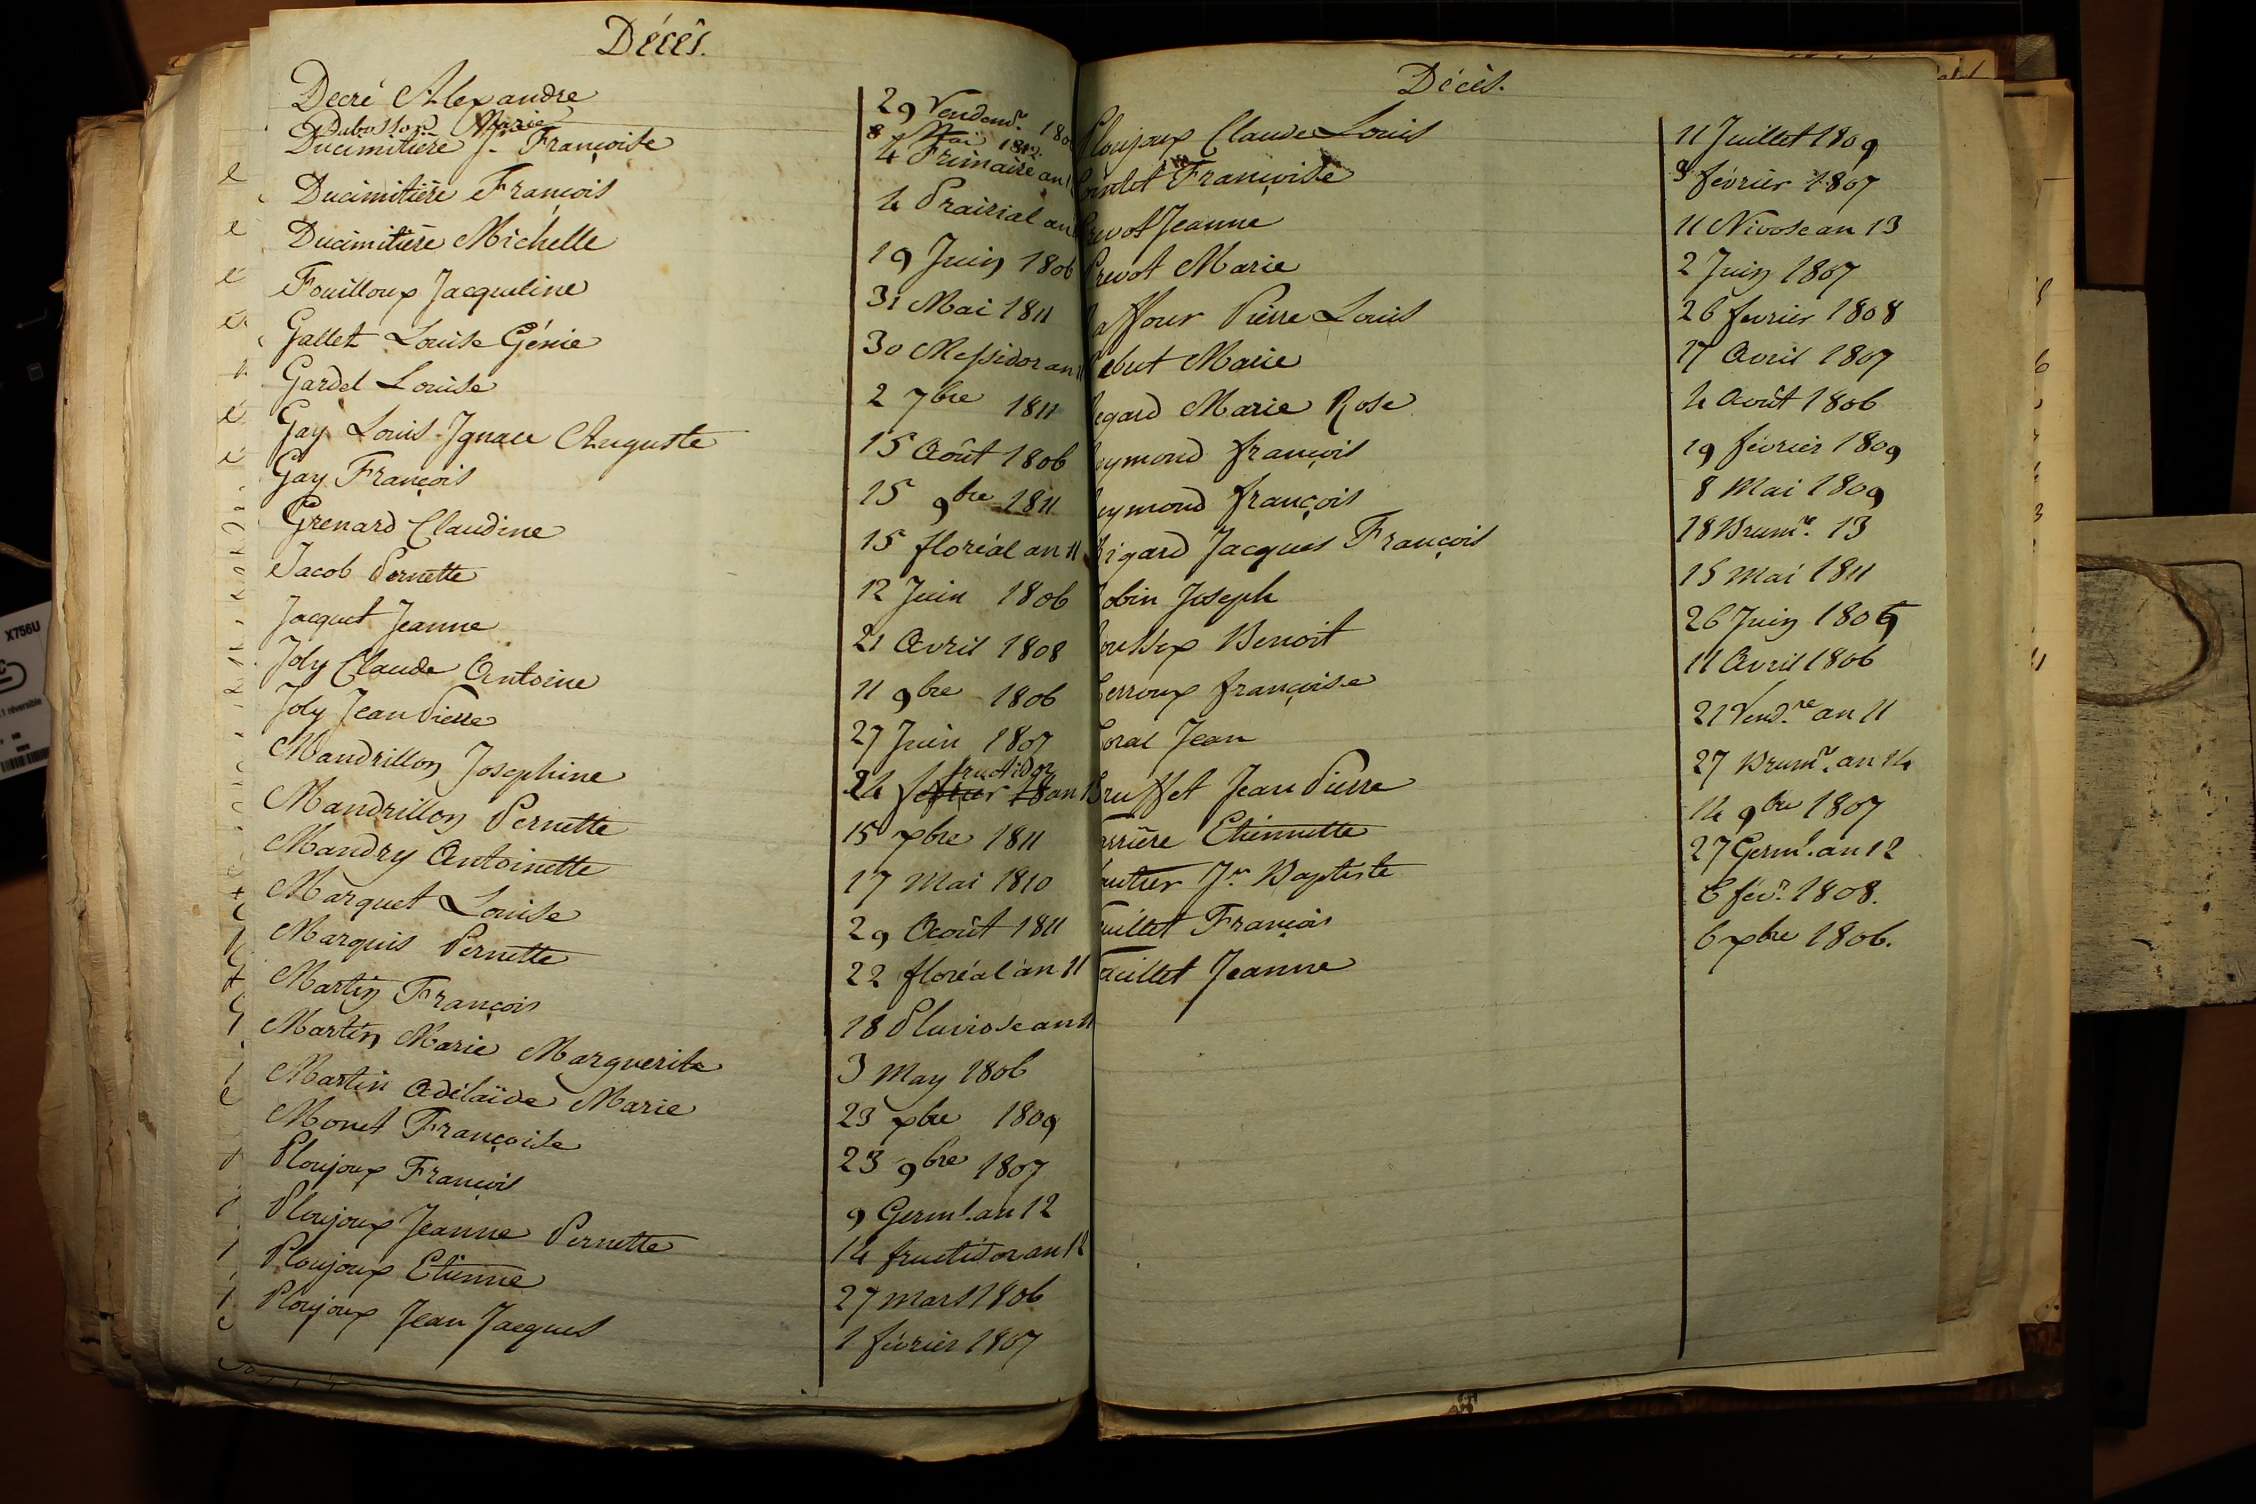 Décès.
Decré Alexandre 29 Vendem.re 180
Dubosson Marie 8 Mai 1812
Ducimitière J. Françoise 4 Frimaire an 1
Ducimitière François 4 Prairial an
Ducimitière Michelle 19 Juin 1806
Fouilloux Jacqueline 31 Mai 1811
Gallet Louise Génie 30 Messidor an 11
Gardel Louise 2 7bre 1811
Gay Louis Ignace Auguste 15 Août 1806
Gay François 15 9bre 1811
Grenard Claudine 15 floréal an 11
Jacob Pernette 12 Juin 1806
Jacquet Jeanne 21 Avril 1808
Joly Claude Antoine 11 9bre 1806
Joly Jean Pierre 27 Juin 1807
Mandrillon Josephine 24 fructidor an 1
Mandrillon Pernette 15 xbre 1811
Mandry Antoinette 17 Mai 1810
Marquet Louise 29 Août 1811
Marquis Pernette 22 floréal an 11
Martin François 18 Pluviose an 11
Martin Marie Marguerite 3 May 1806
Martin Adélaïde Marie 23 xbre 1809
Monet Françoise 23 9bre 1807
Ploujoux François 9 Germl. an 12
Ploujoux Jeanne Pernette 14 fructidor an 12
Ploujoux Etienne 27 Mars 1806
Ploujoux Jean Jacques 1 février 1807
Décès.
Ploujoux Claude Louis 11 Juillet 1809
ointet Françoise février 1807
revot Jeanne 11 Nivose an 13
Prevot Marie 2 Juin 1807
affour Pierre Louis 26 fevrier 1808
ebut Marie 17 Avril 1807
egard Marie Rose 4 Août 1806
eymond françois 19 février 1809
eymond françois 8 Mai 1809
Rigard Jacques François 18 Brum.re 13
obin Joseph 15 Mai 1811
oussex Benoit 26 Juin 1809
erroux françoise 11 Avril 1806
oral Jean 21 Vend.re an 11
ruffet Jean Pierre 27 Brum.re an 14
arrière Etiennette 14 9bre 1807
autier Jn Baptiste 27 Germl. an 12
uillet François 6 fév.r 1808.
uillet Jeanne 6 xbre 1806.
X756U